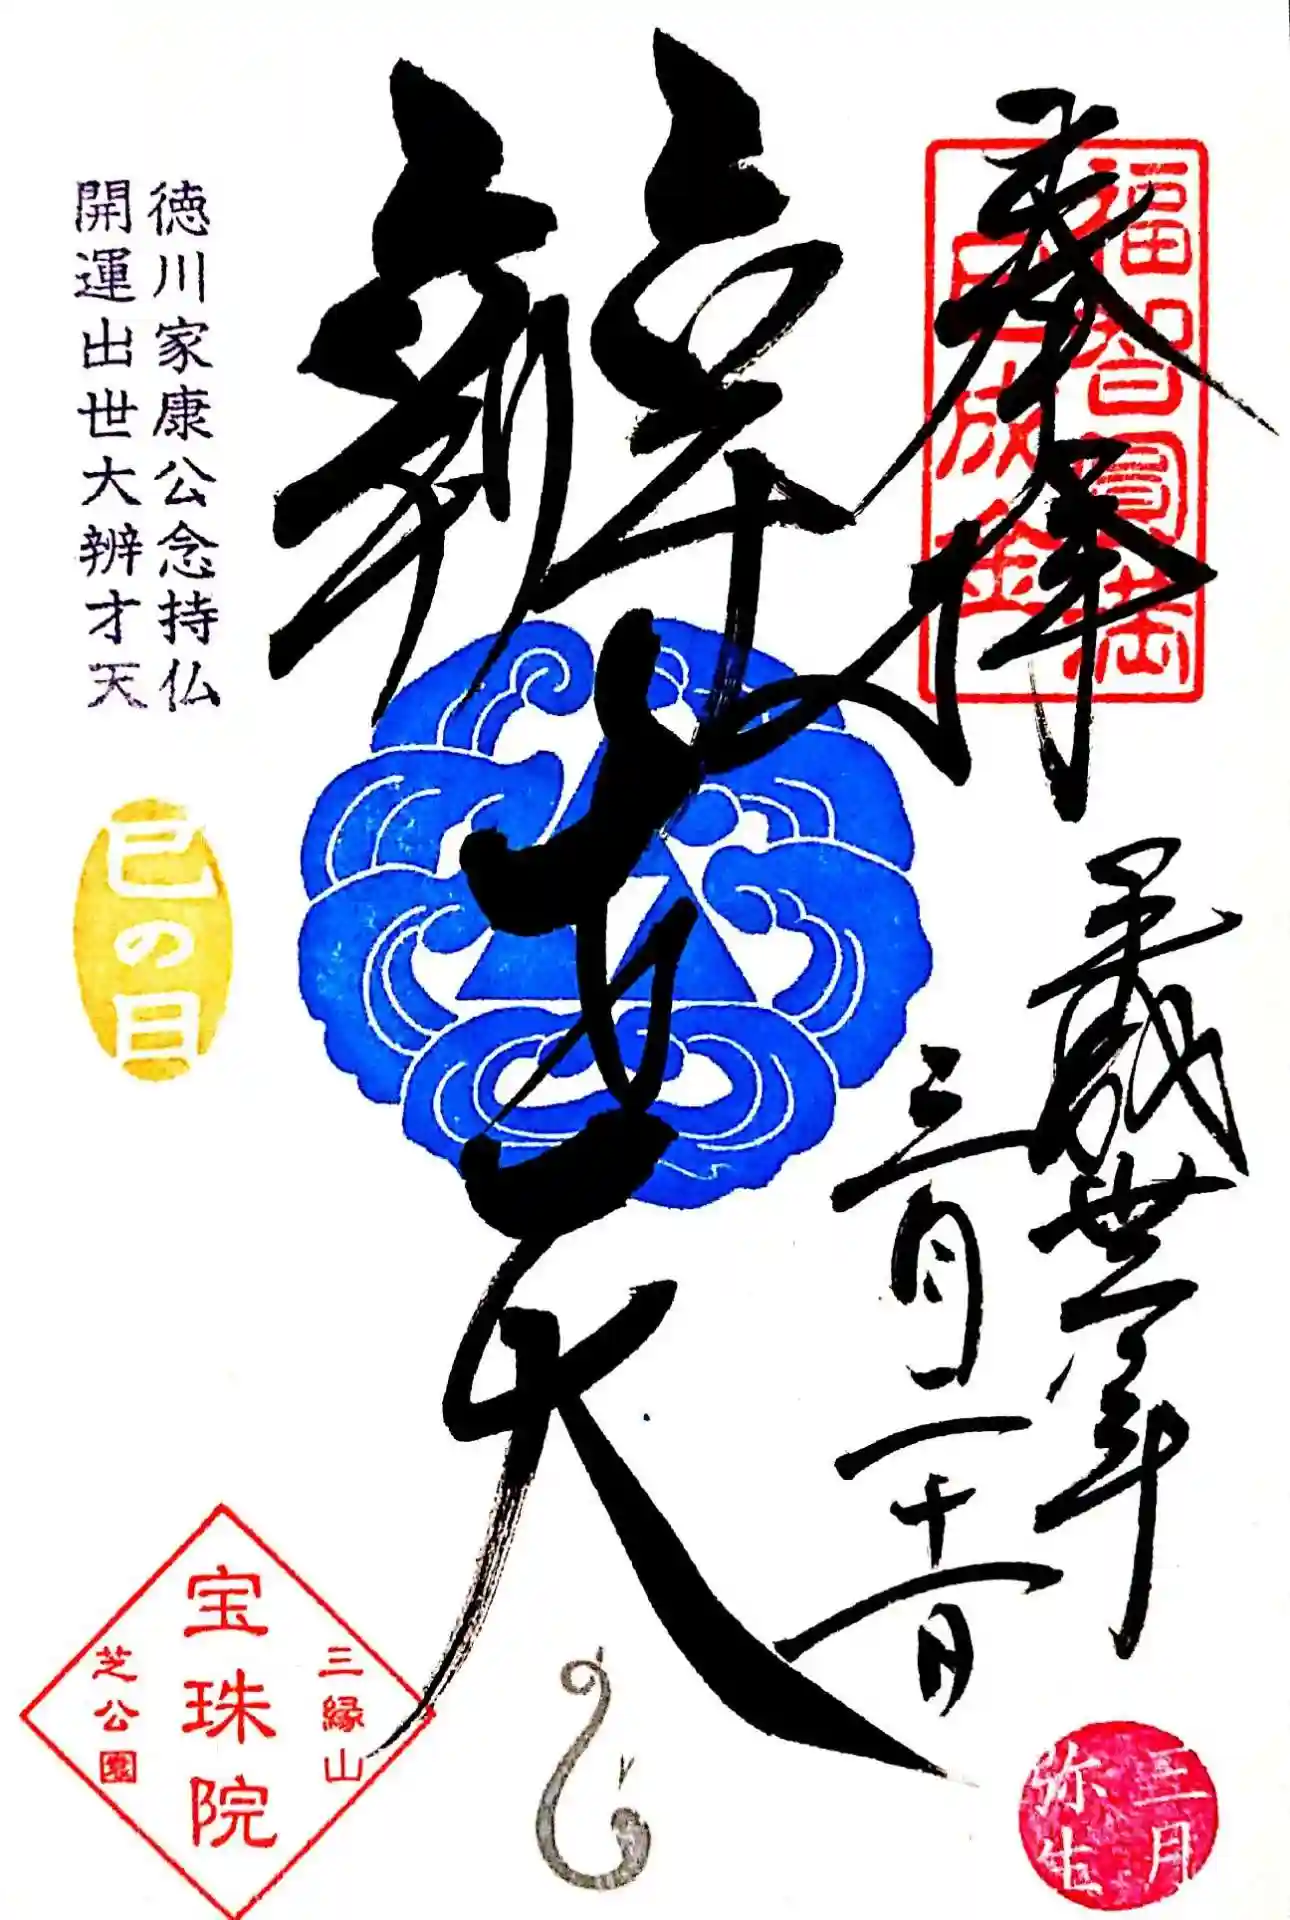 奉拝
福智圓満
巳成金
平成丗年
三月二十一日
三月
弥生
辨才天
徳川家康公念持仏
開運出世大辨才天
巳の日
三縁山
宝珠院
芝公園